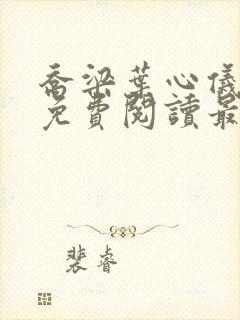 喬梁葉心儀
免費閱讀最
裴睿